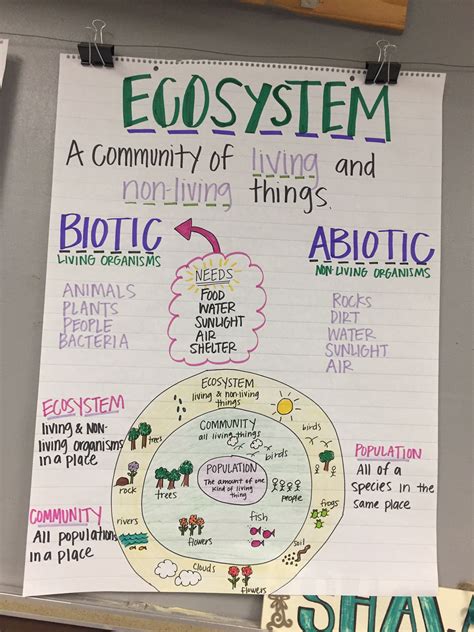 ECOSYSTEM
A COMMUNITY OF living and
non-living things.
BIOTIC
LIVING ORGANISMS
ANIMALS
PLANTS
PEOPLE
BACTERIA
NEEDS
FOOD
WATER
SUNLIGHT
AIR
SHELTER
ABIOTIC
NON-LIVING ORGANISMS
ROCKS
DIRT
WATER
SUNLIGHT
AIR
ECOSYSTEM
living & NON-
living organisms
in a place
COMMUNITY
All populations
in a place
ECOSYSTEM
living & non-living
things
COMMUNITY
all living things
POPULATION
The amount of one
kind of living
thing
trees
birds
birds
rock
trees
people
frogs
rivers
flowers
fish
soil
clouds
flowers
POPULATION
All of a
species in the
same place
SHA